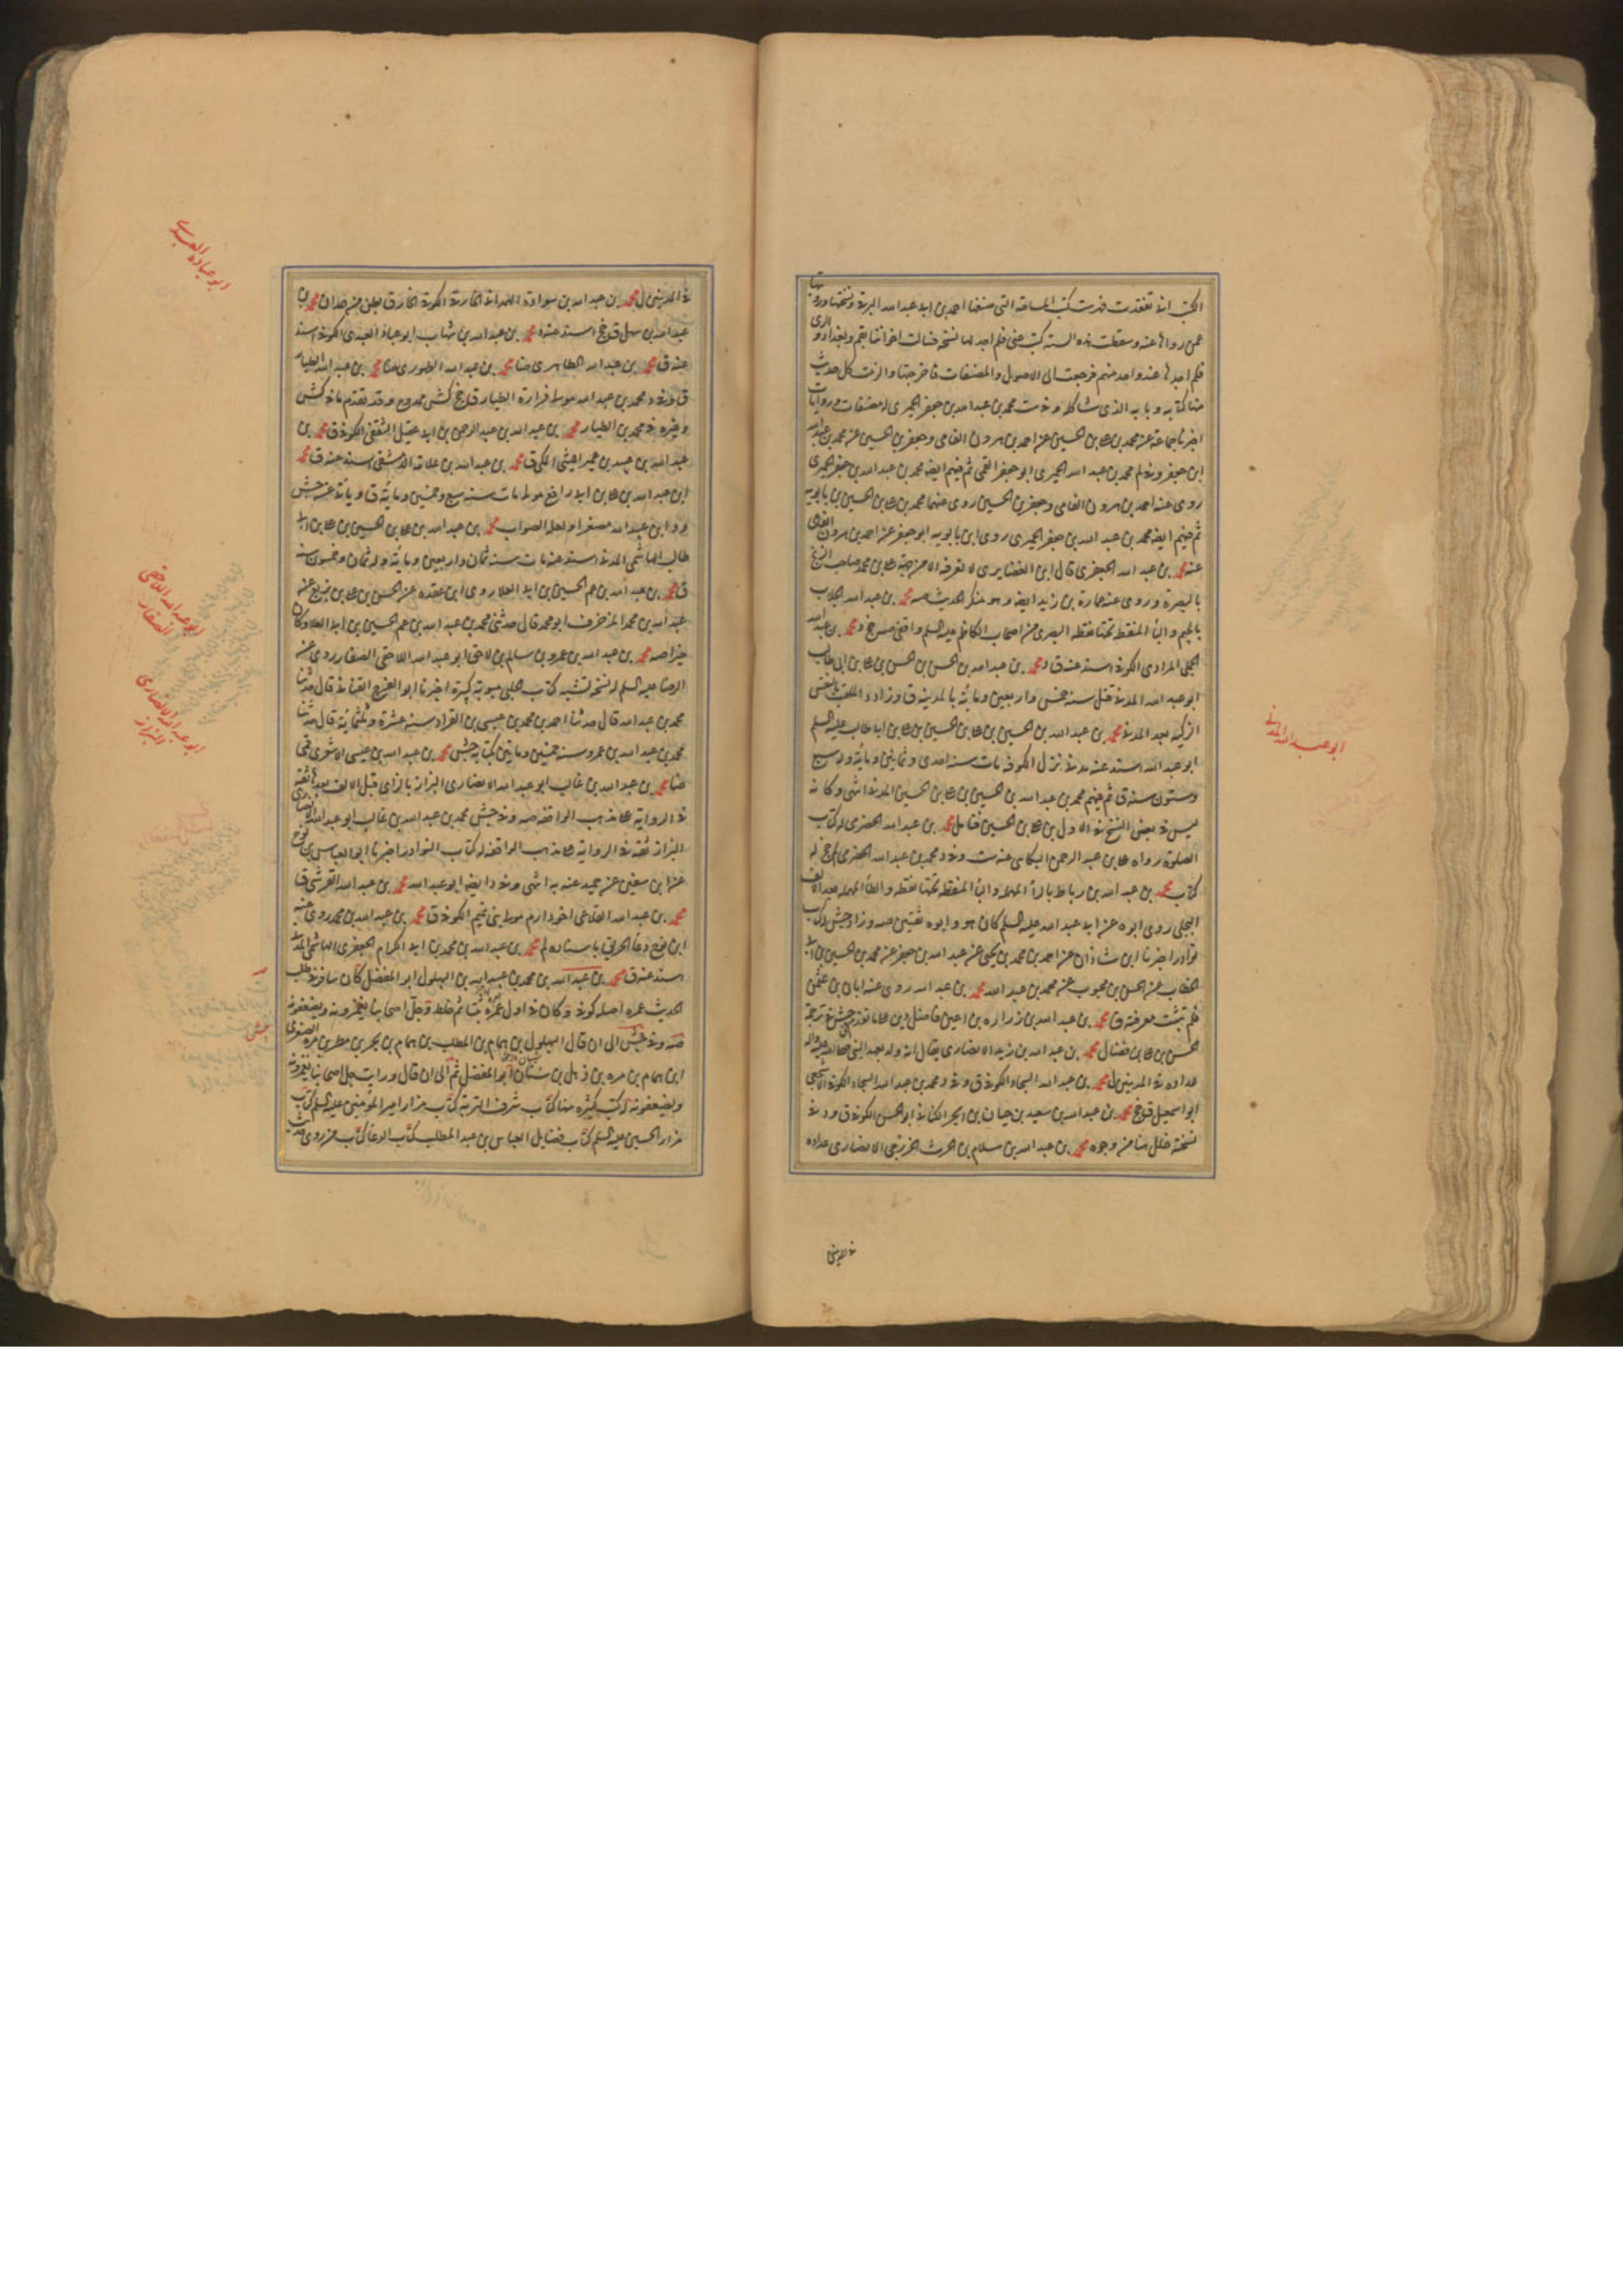 الكتب انى تفقدت فهرست كتب المساحة التى صنفها احمد بن ابى عبد الله البرقى ونسختها ورويتها
عمن رواها عنه وسقطت هذه الستة كتب عنى فلم اجد لها نسخة فسالت اخواننا بقم وبغداد والرى
فلم اجدها عند واحد منهم فرجعت الى الاصول والمصنفات فاخرجتها والزمت كل حديث
منها كتابه وبابه الذى شاكله وفى ست محمد بن عبد الله بن جعفر الحميرى له مصنفات وروايات
اخبرنا جماعة عنه محمد بن على بن الحسين عن احمد بن هرون الفامى وجعفر بن الحسين عنه محمد بن عبد الله
ابن جعفر وفى لم محمد بن عبد الله الحميرى ابو جعفر القمى ثم فيهم ايضا محمد بن عبد الله بن جعفر الحميرى
روى عنه احمد بن هرون الفامى وجعفر بن الحسين روى عنهما محمد بن على بن الحسين بن بابويه
ثم فيهم ايضا محمد بن عبد الله بن جعفر الحميرى روى ابن بابويه ابو جعفر عن احمد بن هرون الفامى
عنه محمد بن عبد الله الجعفرى قال ابن الغضايرى لا نعرفه الا من جهة على بن محمد صاحب الزنج
بالبصرة وروى عنه عمارة بن زيد ايضا وهو منكر الحديث صه محمد بن عبد الله الجلاب
بالجيم والباء المنقطة تحتها نقطة البصرى من اصحاب الكاظم عليه السلم واقفى صه جخ د محمد بن عبد الله
الجملى المرادى الكوفى اسند عنه ق د محمد بن عبد الله بن الحسن بن الحسن بن على بن ابى طالب
ابو عبد الله المدنى قتل سنة خمس واربعين ومائة بالمدينة ق وزاد د الملقب بالنفس
الزكية بعد المدنى محمد بن عبد الله بن الحسين بن على بن الحسين بن على بن ابى طالب عليه السلم
ابو عبد الله اسند عنه مدنى نزل الكوفة مات سنة احدى وثمانين ومائة وله سبع
وستون سنة ق ثم فيهم محمد بن عبد الله بن الحسين بن على بن الحسين المدنى انتهى وكانه
ليس فى بعض النسخ فى الاول بن على بن الحسين فتامل محمد بن عبد الله الحضرمى له كتاب
الصلوة رواه على بن عبد الرحمن البكائى عنه ست وفى د محمد بن عبد الله الحضرمى لم جخ له
كتاب محمد بن عبد الله بن رباط بالراء المهملة والباء المنقطة تحتها نقطة والطاء المهملة بعد الالف
البجلى روى ابوه عن ابى عبد الله عليه السلم كان هو وابوه ثقتين صه وزاد جش له كتاب
نوادر اخبرنا ابن شاذان عن احمد بن محمد بن يحيى عن عبد الله بن جعفر عن محمد بن الحسين بن ابى
الخطاب عن الحسن بن محبوب عن محمد بن عبد الله محمد بن عبد الله روى عنه ابان بن عثمن
فلم تثبت معرفته ق محمد بن عبد الله بن زرارة بن اعين فاضل دين على ما نقد جش فى ترجمة
الحسن بن على بن فضال محمد بن عبد الله بن زيد الانصارى يقال انه ولد بعهد النبى صلى الله عليه واله
عداده فى المدنيين ل محمد بن عبد الله البجاد الكوفى ق وفى د محمد بن عبد الله البجاد الكوفى الاشجعى
ابو اسمعيل ق جخ محمد بن عبد الله بن سعيد بن حيان بن ابجر الكنانى ابو الحسن الكوفى ق ود فى
نسخة خلل هنا من وجوه محمد بن عبد الله بن سلام بن الحرث الخزرجى الانصارى عداده
فى المدنى
ابو عبد الله المدنى
فى المدنيين ل محمد بن عبد الله بن سوادة الهمدانى الخارفى الكوفى الخارف بطن من همدان محمد بن
عبد الله بن سهل ق جخ اسند عنه د محمد بن عبد الله بن شهاب ابو عبادة العبدى الكوفى اسند
عنه ق محمد بن عبد الله الطاهرى ضا محمد بن عبد الله الطهورى ضا محمد بن عبد الله الطيار
ق وفى د محمد بن عبد الله مولى فزارة الطيار ق جخ كش ممدوح وقد تقدم ما فى كش
وغيره فى محمد بن الطيار محمد بن عبد الله بن عبد الرحمن بن ابى عقيل الثقفى الكوفى ق محمد بن
عبد الله بن عبيد بن عمير الليثى المكى ق محمد بن عبد الله بن علاثة الدمشقى اسند عنه ق محمد
ابن عبد الله بن على بن ابى رافع مولى مات سنة سبع وخمسين ومائة ق وياتى عن جش
ود ابن عبيد الله مصغرا ولعله الصواب محمد بن عبد الله بن على بن الحسين بن على بن ابى
طالب الهاشمى المدنى اسند عنه مات سنة ثمان واربعين ومائة وله ثمان وخمسون سنة
ق محمد بن عبد الله بن عم الحسين بن ابى العلا روى ابن عقدة عن الحسن بن على بن بزيع عن
عبد الله بن محمد المزخرف ابو محمد قال حدثنى محمد بن عبد الله بن عم الحسين بن ابى العلا وكان
خيرا صه محمد بن عبد الله بن عمرو بن سالم بن لاحق ابو عبد الله اللاحقى الصفار روى عن
الرضا عليه السلم له نسخة تشبه كتاب الحلبى مبوبة كبيرة اخبرنا ابو الفرج القنانى قال حدثنا
محمد بن عبد الله قال حدثنا احمد بن محمد بن عيسى بن القراد سنة عشرة وثلثمائة قال حدثنا
محمد بن عبد الله بن عمرو سنة خمسين ومايتين بكتابه جش محمد بن عبد الله بن عيسى الاشعرى قمى
ضا محمد بن عبد الله بن غالب ابو عبد الله الانصارى البزاز بالزاى قبل الالف وبعدها ثقة
فى الرواية على مذهب الواقفة صه وفى جش محمد بن عبد الله بن غالب ابو عبد الله الانصارى
البزاز ثقة فى الرواية على مذهب الواقفة له كتاب النوادر اخبرنا ابو العباس بن نوح
عن ابن سفين عن حميد عنه به انتهى وفى د ايضا ابو عبد الله محمد بن عبد الله القرشى ق
محمد بن عبد الله القلاعى اخو دارم مولى بنى تميم الكوفى ق محمد بن عبد الله بن محمد روى عنه
ابن نوح دعاء الحريق باسناده لم محمد بن عبد الله بن محمد بن ابى الكرام الجعفرى الهاشمى المدنى
اسند عنه ق محمد بن عبد الله بن محمد بن عبيد الله بن البهلول ابو المفضل كان سافر فى طلب
الحديث عمره اصله كوفى وكان فى اول عمره ثبتا ثم خلط وجل اصحابنا يغمزونه ويضعفونه
صه وفى جش الى ان قال البهلول بن همام بن المطلب بن همام بن بحر بن مطر بن مرة الصغرى
ابن همام بن مرة بن ذهل بن شيبان ابو المفضل ثم الى ان قال ورايت جل اصحابنا يغمزونه
ويضعفونه له كتب كثيرة منها كتاب شرف التربة كتاب مزار امير المؤمنين عليه السلم كتاب
مزار الحسين عليه السلم كتاب فضايل العباس بن عبد المطلب كتاب الدعا كتاب من روى حديث
ابو عبادة العبدى
ابو عبد الله اللاحقى
الصفار
ابو عبد الله الانصارى
البزاز
جش